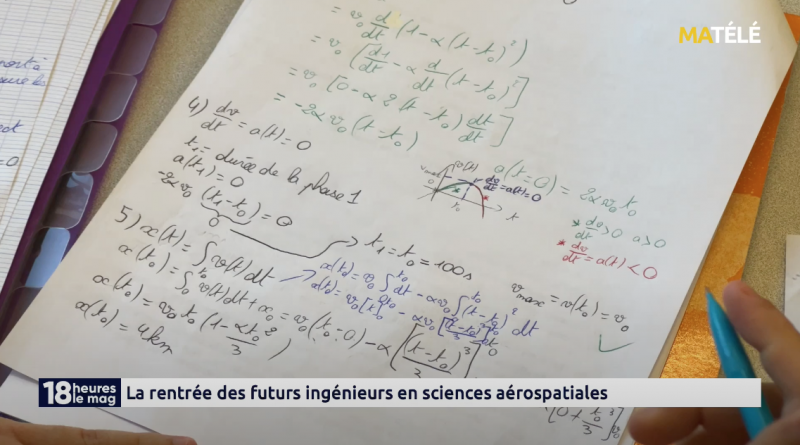 MATÉLÉ
= v₀ d/dt (1 - α(t - t₀)²)
= v₀ [d1/dt - α d/dt (t - t₀)²]
= v₀ [0 - α 2 (t - t₀) dt/dt]
= -2α v₀ (t - t₀)
4) dv/dt = a(t) = 0
t₁ = durée de la phase 1
a(t₁) = 0
-2α v₀ (t₁ - t₀) = 0
0
→ t₁ = t₀ = 100s
v(t)
dv/dt = a(t) = 0
t₀
t
a(t=0) = 2α v₀ t₀
dv/dt > 0 a > 0
dv/dt = a(t) < 0
v max = v(t₀) = v₀
5) x(t) = ∫ v(t) dt
x(t₀) = ∫ v(t) dt + x₀ = v₀ (t₀ - 0) - α [(t - t₀)³
x(t₀) = v₀ ∫ dt - α v₀ ∫ (t - t₀)² dt
x(t₀) = v₀ [t] - α v₀ [(t - t₀)³/3]
x(t₀) = v₀ t₀ (1 - α t₀²/3)
x(t₀) = 4 km
[0 + t₀³/3]
18 heures
le mag
La rentrée des futurs ingénieurs en sciences aérospatiales